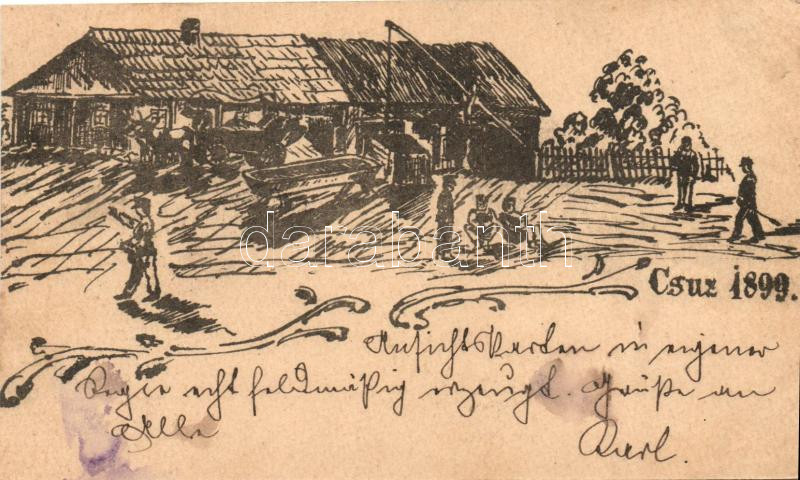 darabanth
Csuz 1899.
Ansichtskarten in eigener
Regie echt feldmäßig erzeugt. Grüße an
Alle
Karl.